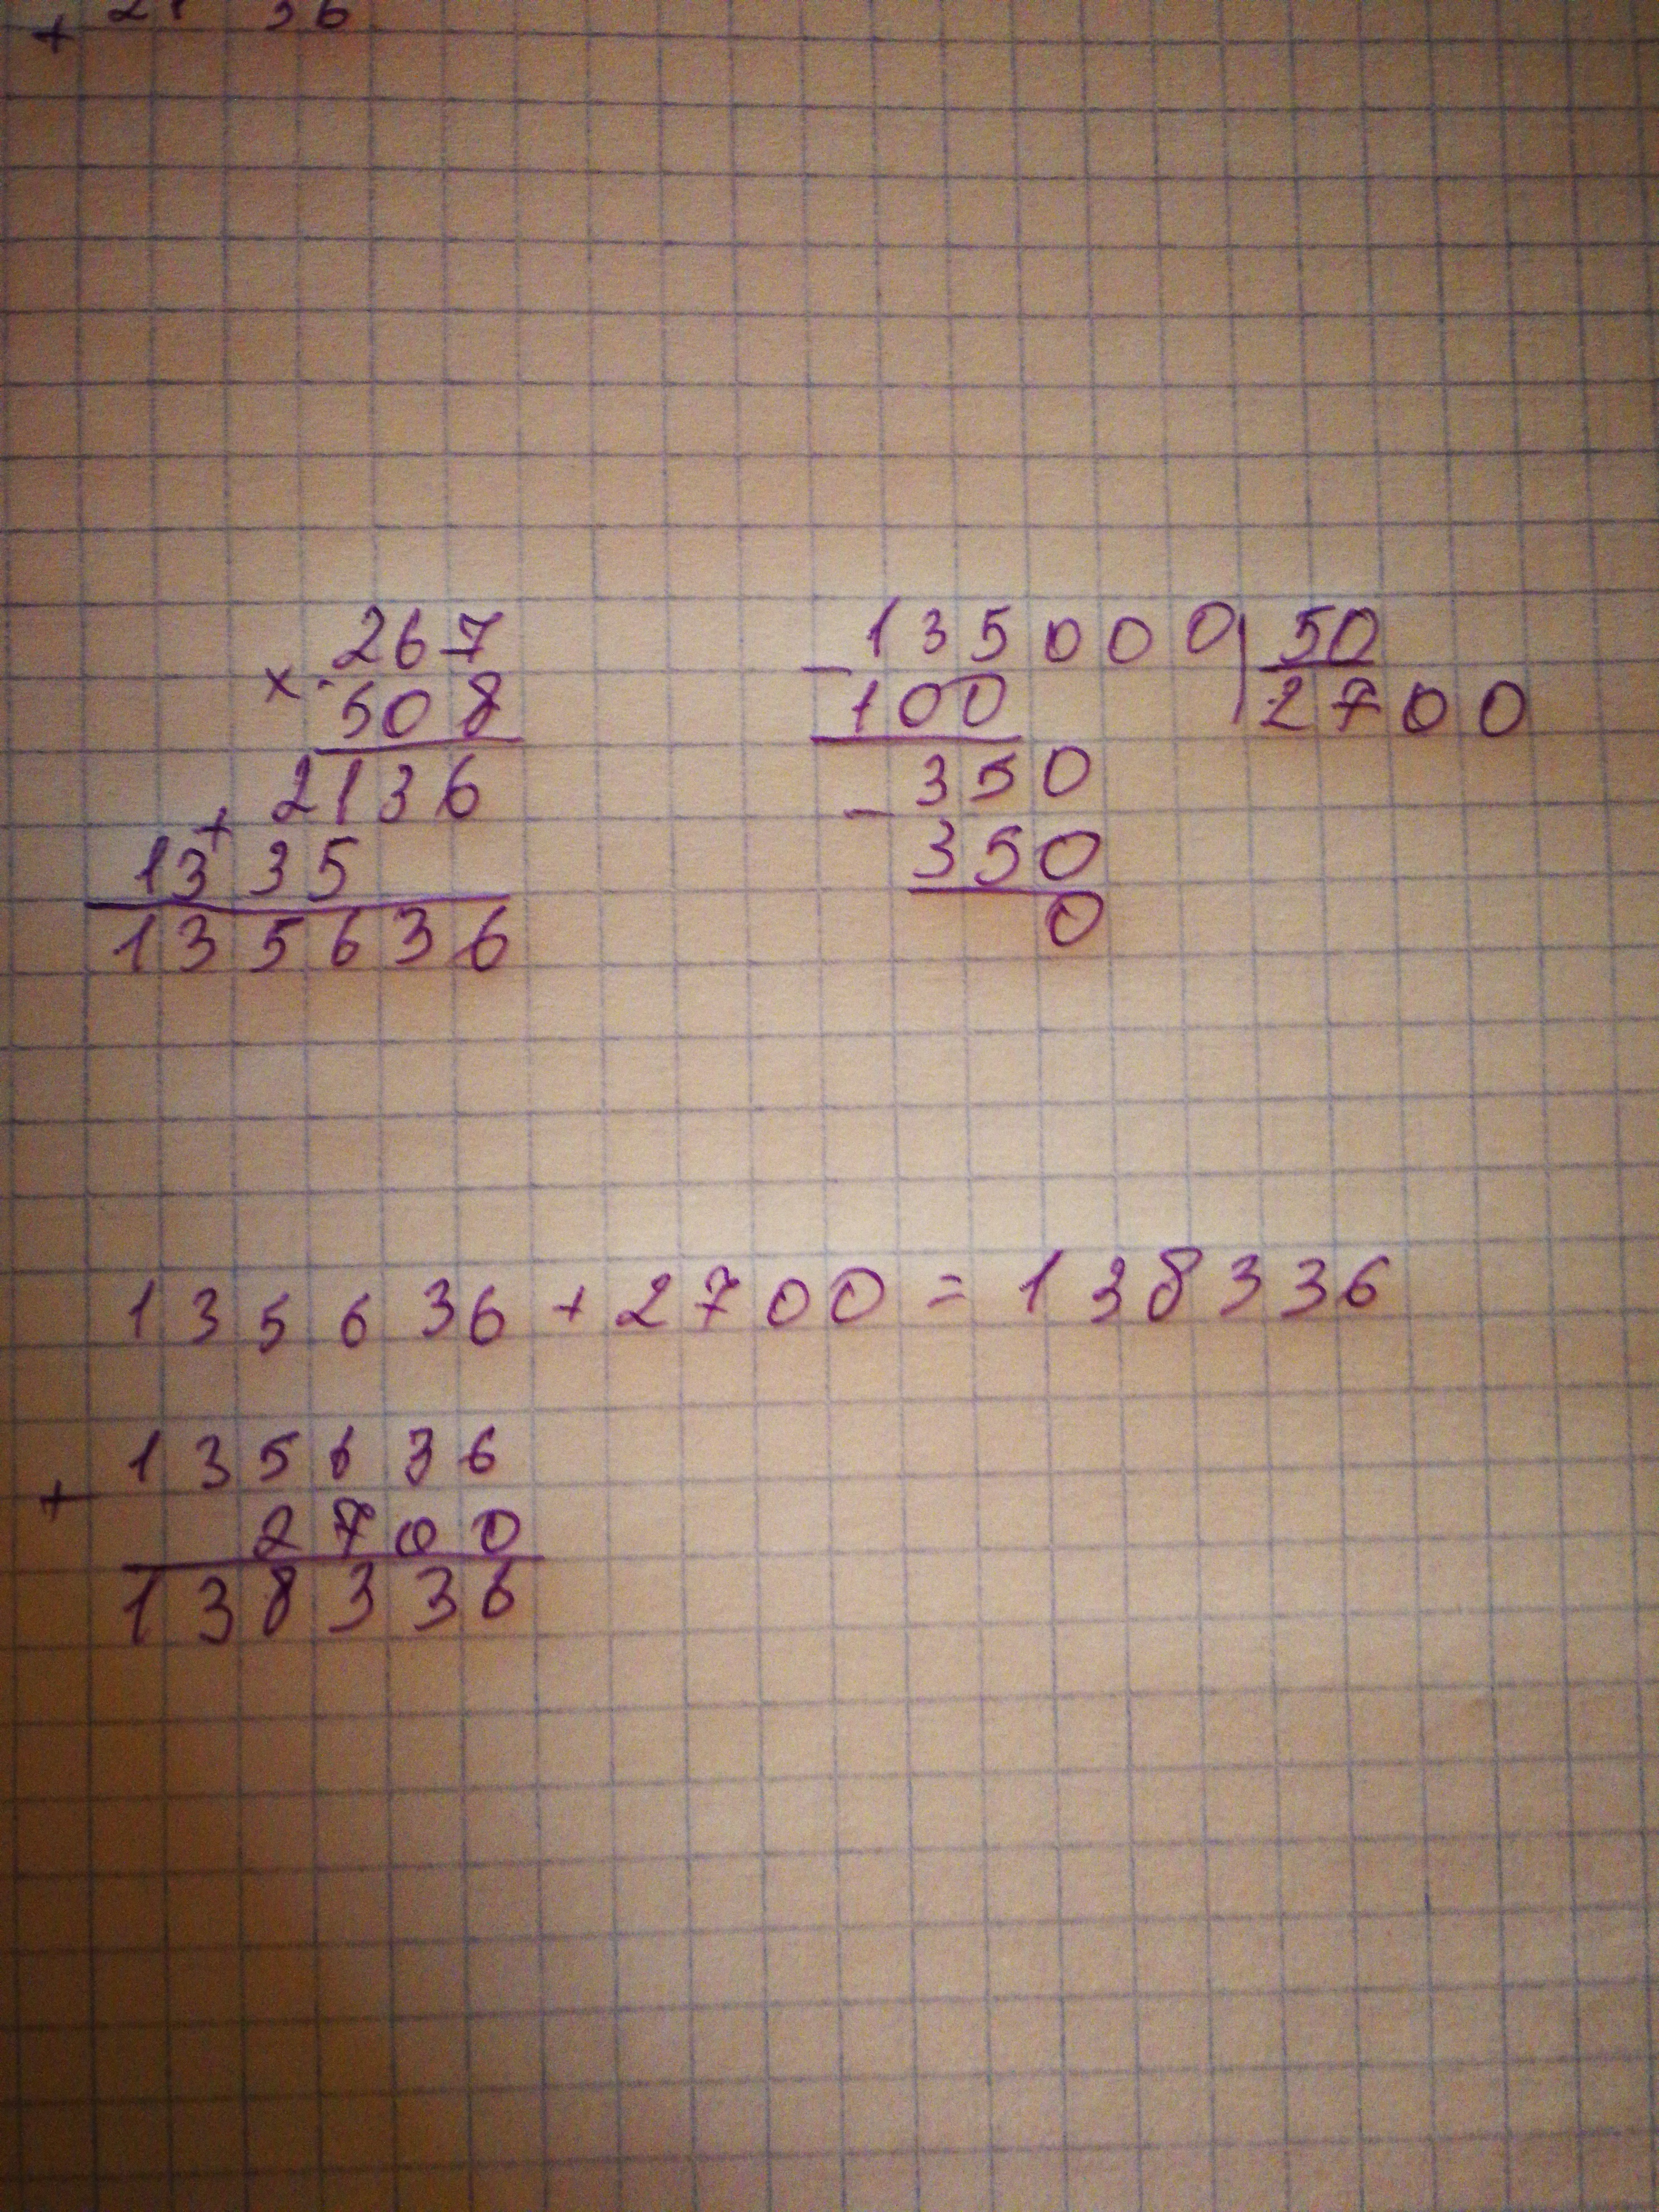 + 21 36
267
× 508
2136
+
1335
135636
- 135000 | 50
100 2700
350
- 350
0
135636 + 2700 = 138336
135636
+
2700
138336